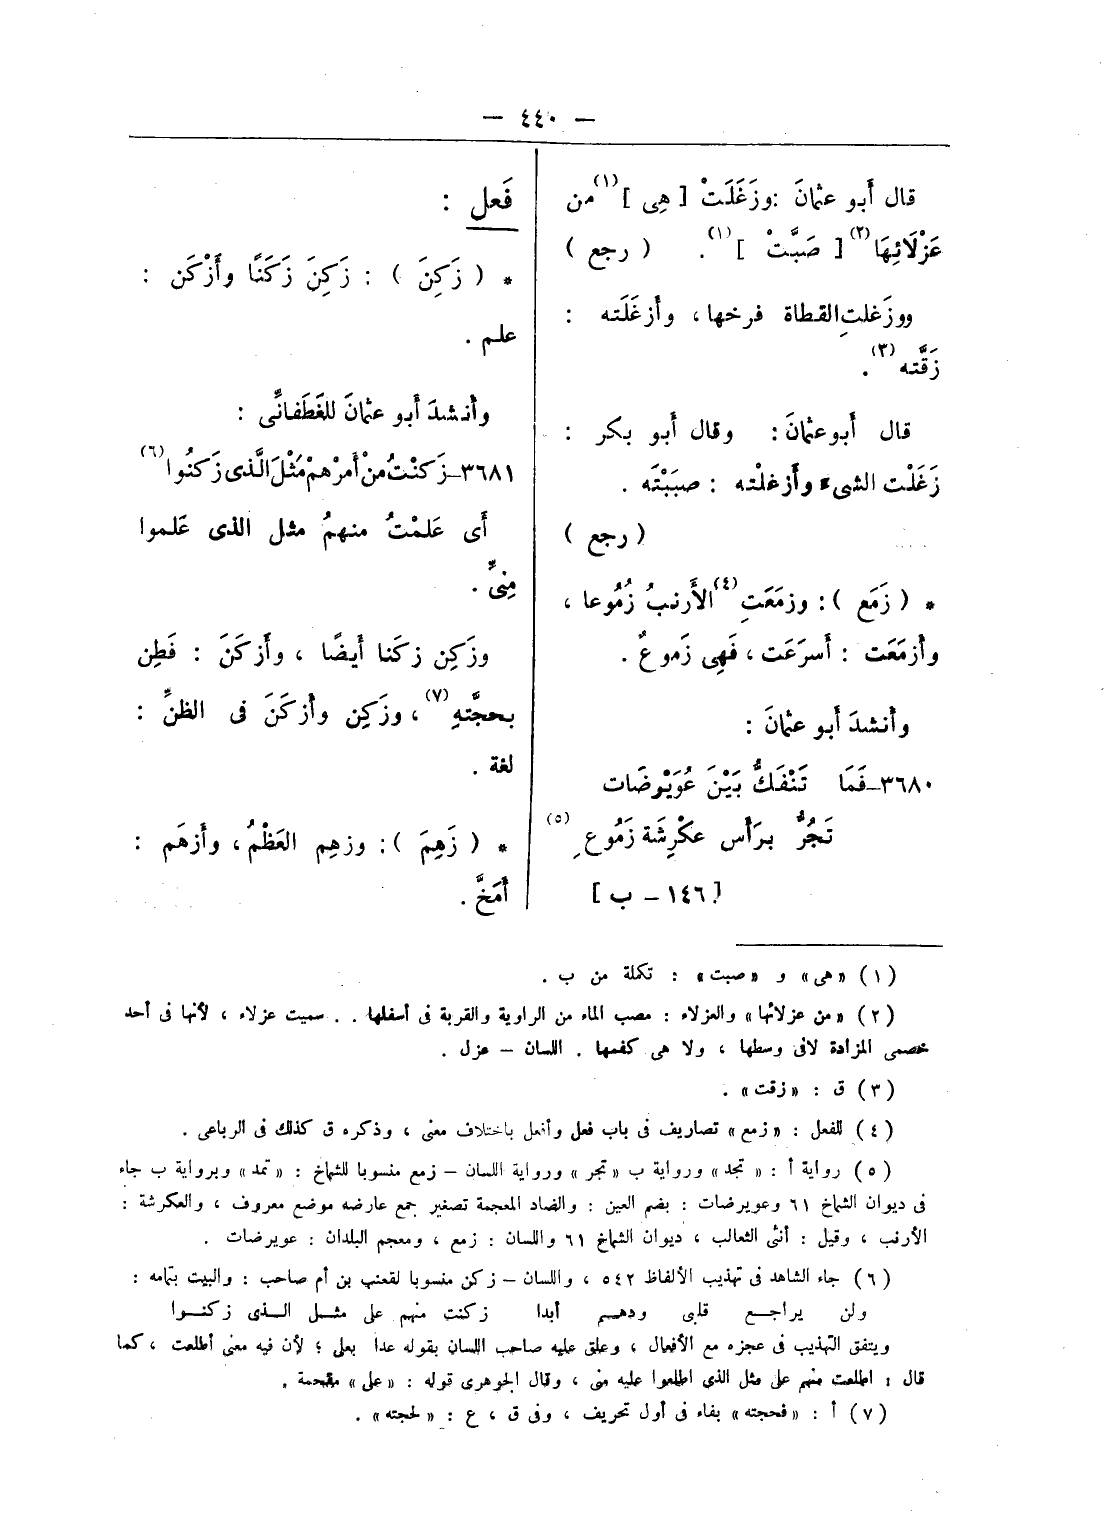 — ٤٤٠ —
قال أَبو عثمانَ : وزَغَلَتْ [ هِى ] (١) من
عَزْلَائِهَا (٢) [ صَبَّتْ ] (١) . ( رجع )
ووزَغلتِ القطاة فرخها ، وأَزغَلَته :
زَقَّته (٣) .
قال أَبوعثمانَ : وقال أَبو بكر :
زَغَلْت الشىء وأَزغلْته : صبَبْتَه .
( رجع )
* ( زَمَع ) : وزمَعَتِ (٤) الأَرنبُ زُمُوعا ،
وأَزمَعَت : أَسرَعَت ، فَهِى زَموعٌ .
وأَنشدَ أَبو عثمانَ :
٣٦٨٠ـ فَمَا تَنْفَكُّ بَيْنَ عُوَيْرِضَات
تَجُرُّ برَأس عكْرِشَة زَمُوعِ (٥)
[ ١٤٦ – ب ]
فَعل :
* ( زَكِنَ ) : زَكِنَ زَكَنًا وأَزْكَن :
علم .
وأَنشدَ أَبو عثمانَ للغَطَفانىِّ :
٣٦٨١ـ زَكنْتُ منْ أَمرْهمْ مثْلَ الَّذى زَكنُوا (٦)
أَى عَلمْتُ منهمُ مثل الذى عَلموا
مِنىِّ .
وزَكِن زكنا أَيضًا ، وأَزكَنَ : فَطِن
بحجَّتهِ (٧) ، وزَكِن وأَزكَنَ فى الظنِّ :
لغة .
* ( زَهِمَ ) : وزهِم العَظْمُ ، وأَزهَم :
أَمَخَّ .
(١) «هى» و «صبت» : تكملة من ب .
(٢) «من عزلائها» والعزلاء : مصب الماء من الراوية والقربة فى أسفلها . . سميت عزلاء ، لأنها فى أحد
خصمى المزادة لافى وسطها ، ولا هى كفمها . اللسان – عزل .
(٣) ق : «زقت» .
(٤) للفعل : «زمع» تصاريف فى باب فعل وأفعل باختلاف معنى ، وذكره ق كذلك فى الرباعى .
(٥) رواية أ : « تجد» ورواية ب «تجر» ورواية اللسان – زمع منسوبا للشماخ : «تمد» وبرواية ب جاء
فى ديوان الشماخ ٦١ وعويرضات : بضم العين : والضاد المعجمة تصغير جمع عارضه موضع معروف ، والعكرشة :
الأرنب ، وقيل : أنثى الثعالب ، ديوان الشماخ ٦١ واللسان : زمع ، ومعجم البلدان : عويرضات .
(٦) جاء الشاهد فى تهذيب الألفاظ ٥٤٢ ، واللسان – زكن منسوبا لقعنب بن أم صاحب : والبيت بتمامه :
ولن يراجع قلبى ودهم أبدا زكنت منهم على مثل الذى زكنوا
ويتفق التهذيب فى عجزه مع الأفعال ، وعلق عليه صاحب اللسان بقوله عدا بعلى ؛ لأن فيه معنى أطلعت ، كما
قال : اطلعت منهم على مثل الذى اطلعوا عليه منى ، وقال الجوهرى قوله : «على» مقحمة .
(٧) أ : «فحجته» بفاء فى أول تحريف ، وفى ق ، ع : «لحجته» .